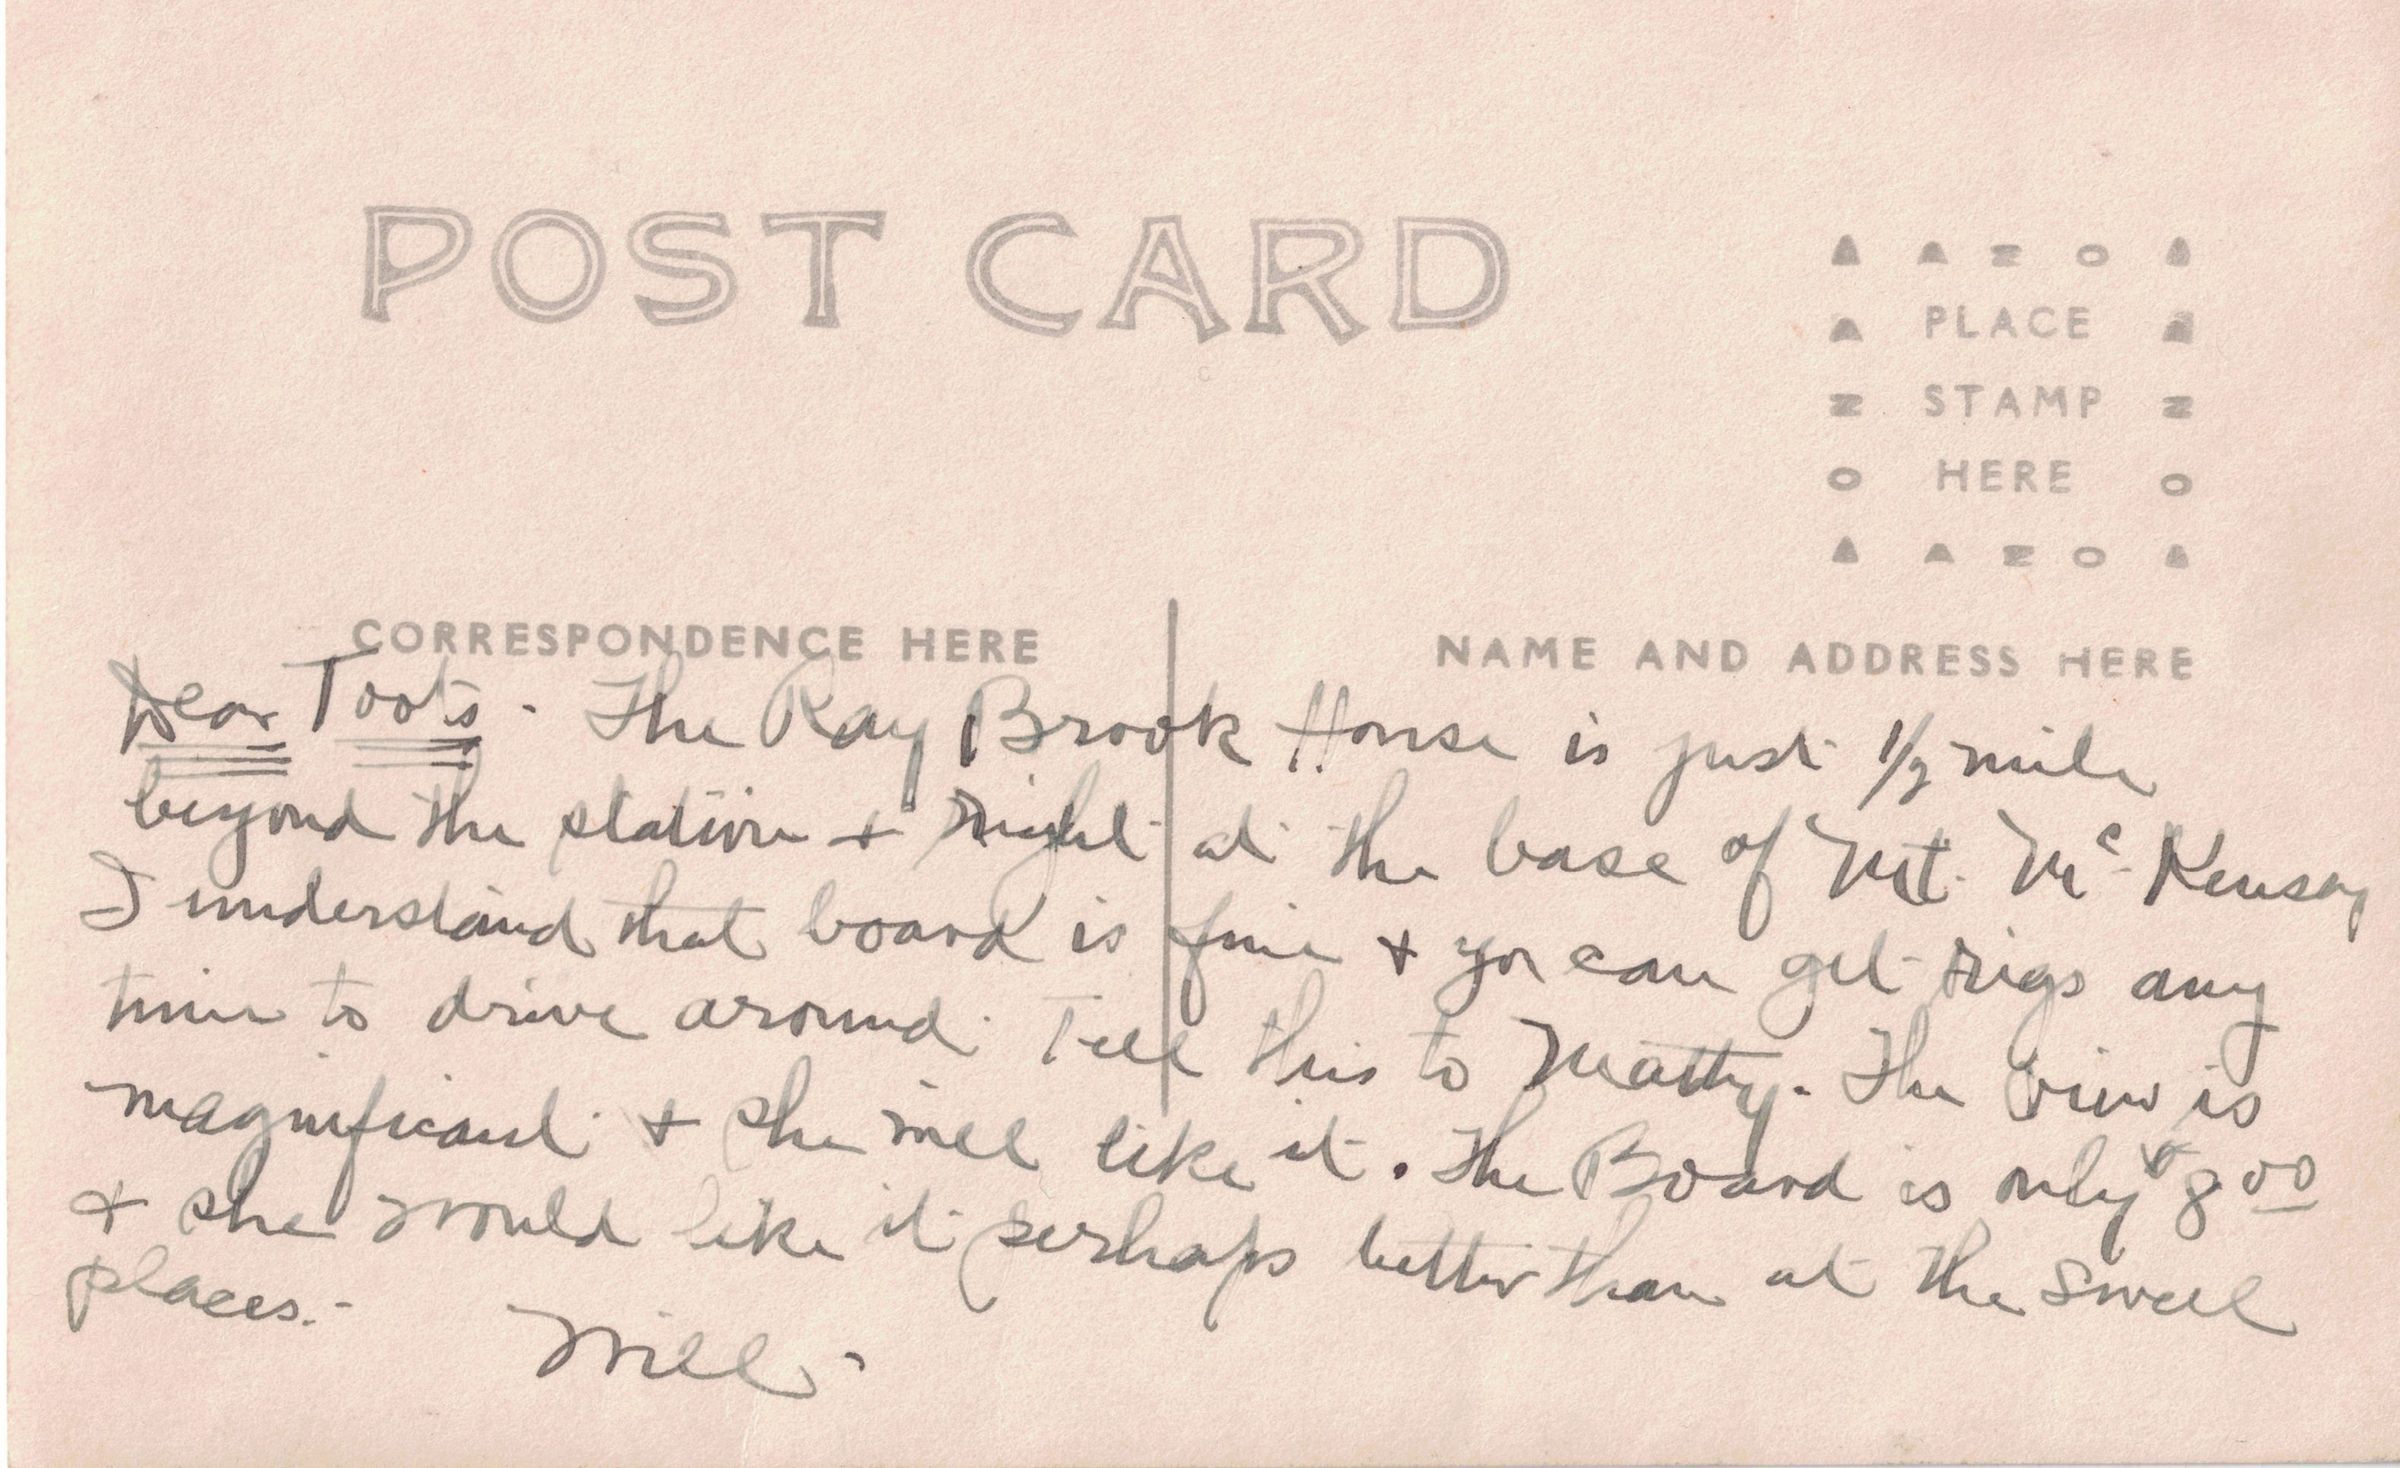 POST CARD
A A Z O A
A PLACE A
Z STAMP Z
O HERE O
A A Z O A
CORRESPONDENCE HERE
NAME AND ADDRESS HERE
Dear Toots - The Ray Brook House is just 1/2 mile
beyond the station + right at the base of Mt. Mc Kensay
I understand that board is fine + you can get rigs any
time to drive around. Tell this to Matty. The view is
magnificant + she will like it. The Board is only $8 00
+ she would like it perhaps better than at the swell
places.-
Will-